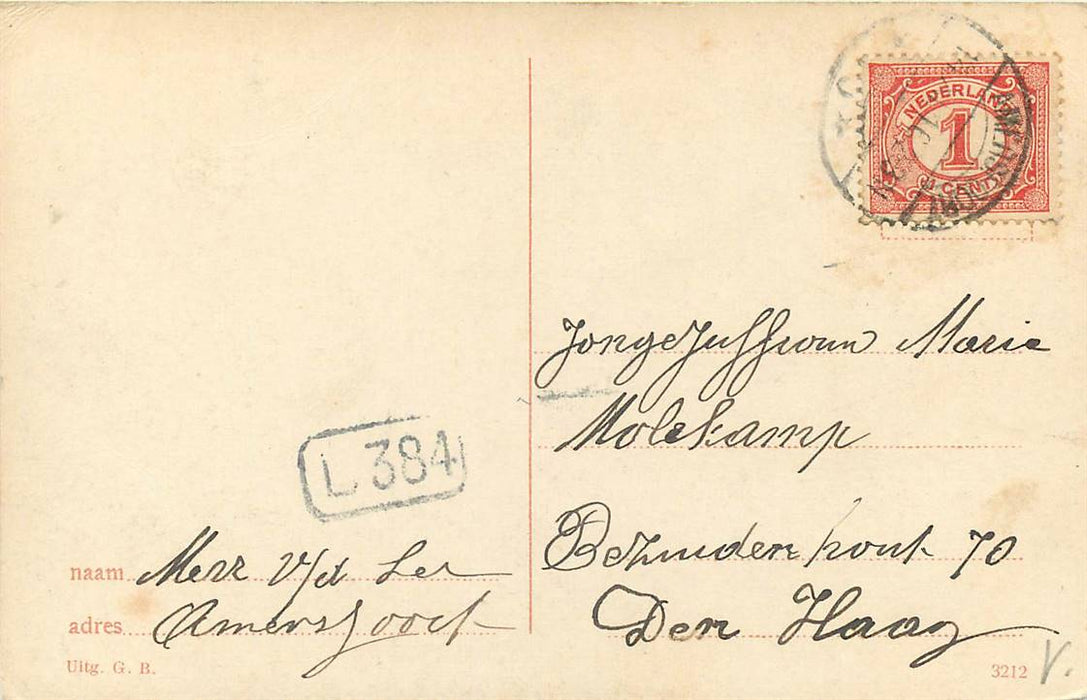 NEDERLAND
1
CENT
AMERSFOORT
JongeJuffrouw Marie
Molekamp
L 384
Bezuidenhout 70
naam Mevr v/d Lee
Den Haag
adres Amersfoort
Uitg. G. B.
3212
V.